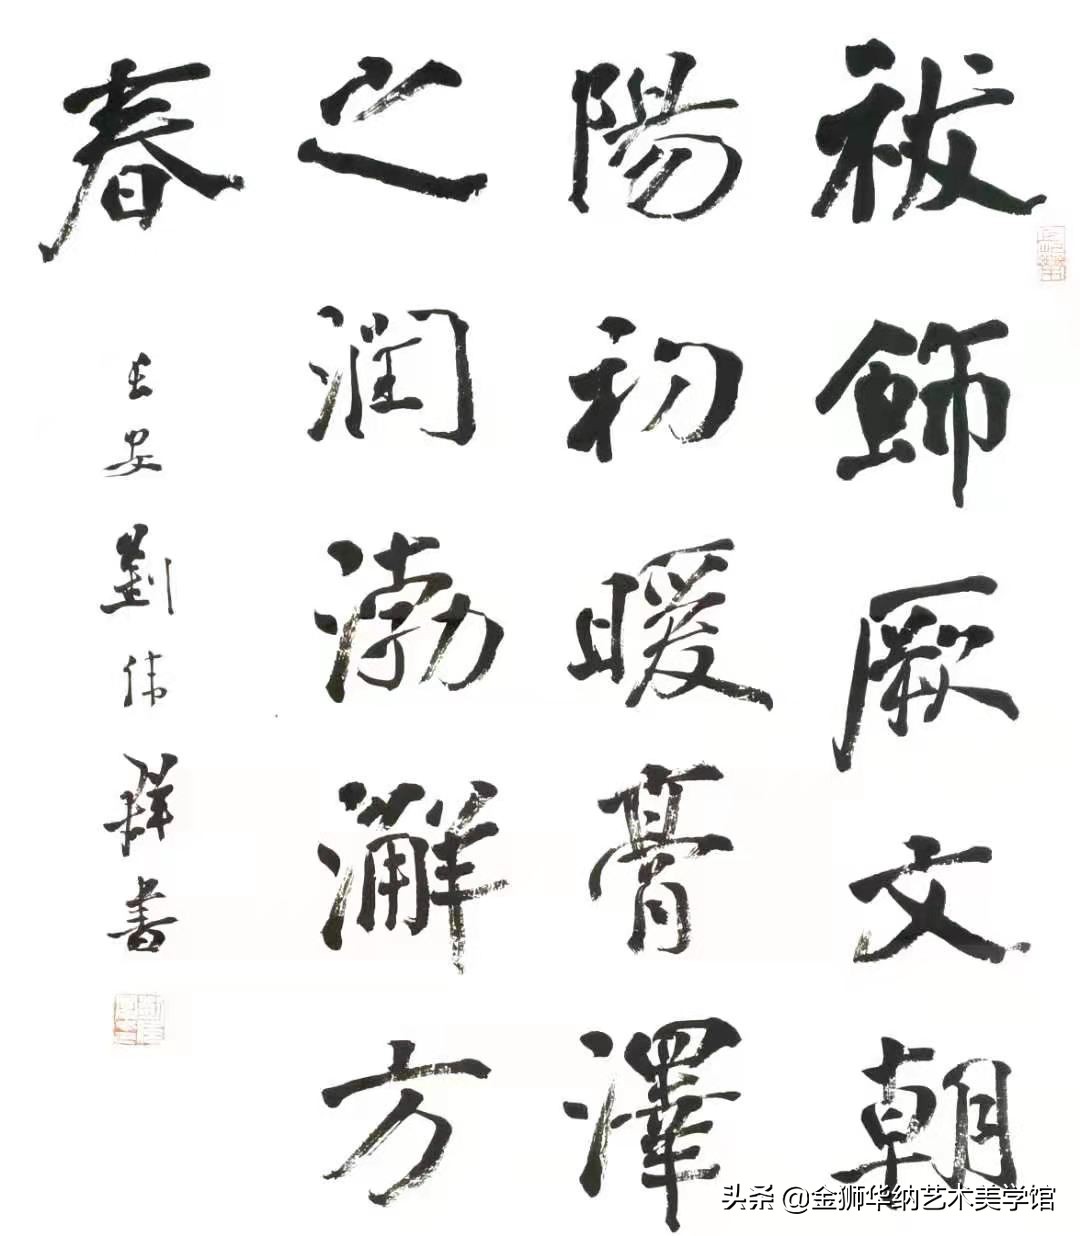 祓飾厥文朝
陽初暖膏澤
之潤渤澥方
春
长安劉伟群書
头条 @金狮华纳艺术美学馆